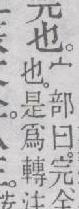 完也。
宀部曰。完全
也。是爲轉注